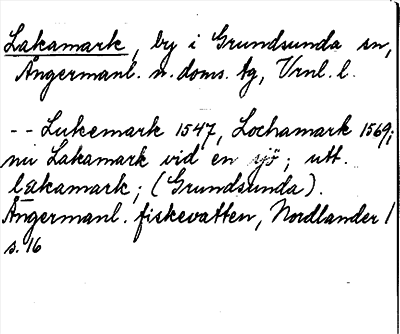 Lakamark, by i Grundsunda sn,
Ångermanl. n. doms. tg, Vrnl. l.
-- Lukemark 1547, Lochamark 1569;
nu Lakamark vid en sjö; utt.
lakamark; (Grundsunda).
Ångermanl. fiskevatten, Nordlander/
s. 16